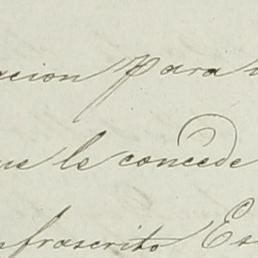 acion para
ue le concede
nfrascrito Es